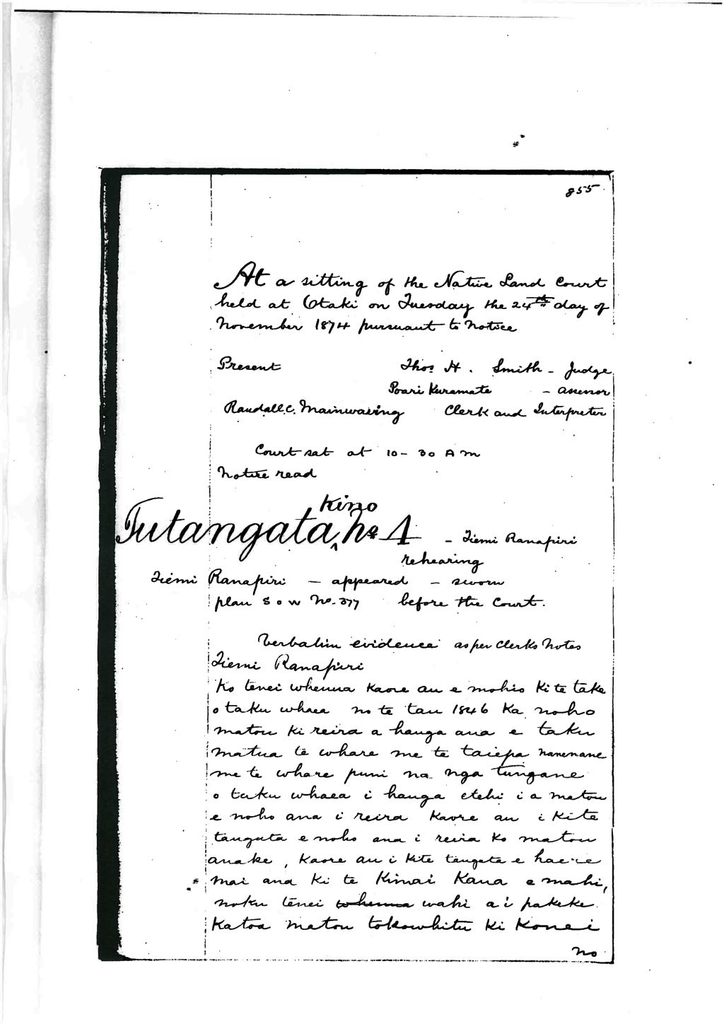 855
At a sitting of the Native Land Court
held at Otaki on Tuesday the 24th day of
November 1874 pursuant to Notice
Present Thos. H. Smith - Judge
Poari Kuramate - assessor
Randall C. Mainwaring Clerk and Interpreter
Court sat at 10-30 A m
Notice read
kino
Tutangata, No 4 - Tiemi Ranapiri
rehearing
Tiemi Ranapiri - appeared - sworn
plan S o w No. 377 before the Court.
Verbatim evidence as per Clerks Notes
Tiemi Ranapiri
Ko tenei whenua kaore au e mohio ki te take
o taku whaea no te tau 1846 ka noho
matou ki reira a hanga ana e taku
matua te whare me te taiepa nanenane
me te whare puni na nga tungane
o taku whaea i hanga etehi i a matou
e noho ana i reira kaore au i kite
tangata e noho ana i reira ko matou
anake, kaore au i kite tangata e haere
mai ana ki te kinai kaua e mahi,
noku tenei whenua wahi a i pakeke
katoa matou tokowhitu ki konei
no